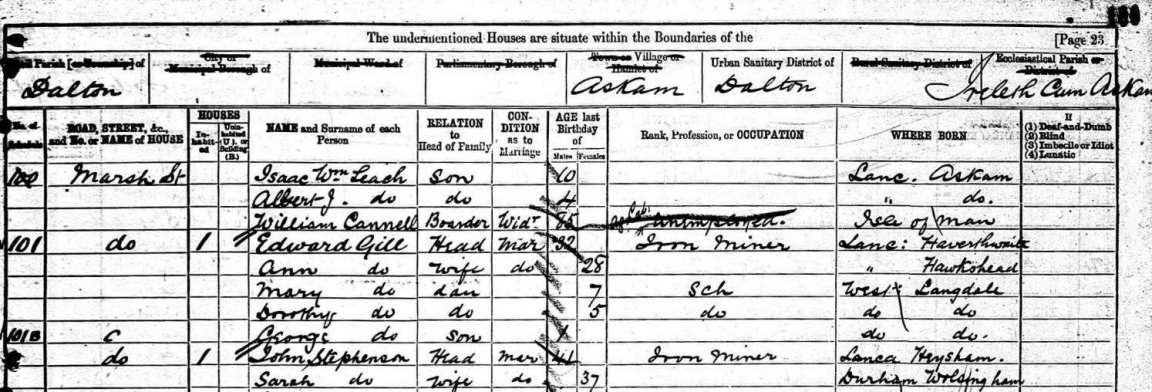 The undermentioned Houses are situate within the Boundaries of the
[Page 23
Parish [or Township] of
City or Municipal Borough of
Municipal Ward of
Parliamentary Borough of
Town or Village or Hamlet of
Urban Sanitary District of
Rural Sanitary District of
Ecclesiastical Parish or District of
Dalton Askam Dalton Ireleth Cum Askam
No. of Schedule
ROAD, STREET, &c., and No. or NAME of HOUSE
HOUSES
Inhabited
Uninhabited (U.), or Building (B.)
NAME and Surname of each Person
RELATION to Head of Family
CONDITION as to Marriage
AGE last Birthday of
Males Females
Rank, Profession, or OCCUPATION
WHERE BORN
If
(1) Deaf-and-Dumb
(2) Blind
(3) Imbecile or Idiot
(4) Lunatic
100 Marsh St Isaac Wm Leach Son 10 Lanc. Askam
Albert J. do do 4 " do.
William Cannell Boarder Widr 85 Ag. Lab. Unemployed. Isle of Man
101 do 1 Edward Gill Head Mar 32 Iron Miner Lanc: Haverthwaite
Ann do Wife do 28 " Hawkshead
Mary do dau 7 Sch West Langdale
Dorothy do do 5 do do do
George do Son do do.
101B do 1 John Stephenson Head Mar 41 Iron Miner Lanca Heysham.
Sarah do Wife do 37 Durham Wolsingham